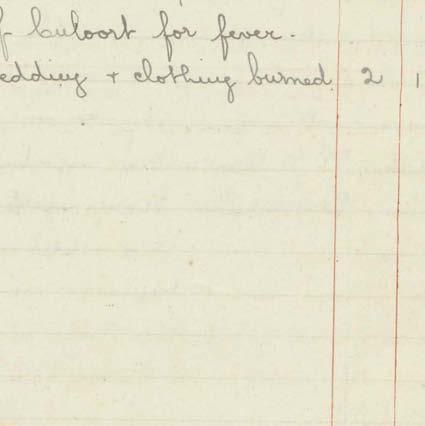 for fever.
edding + clothing burned. 2 1